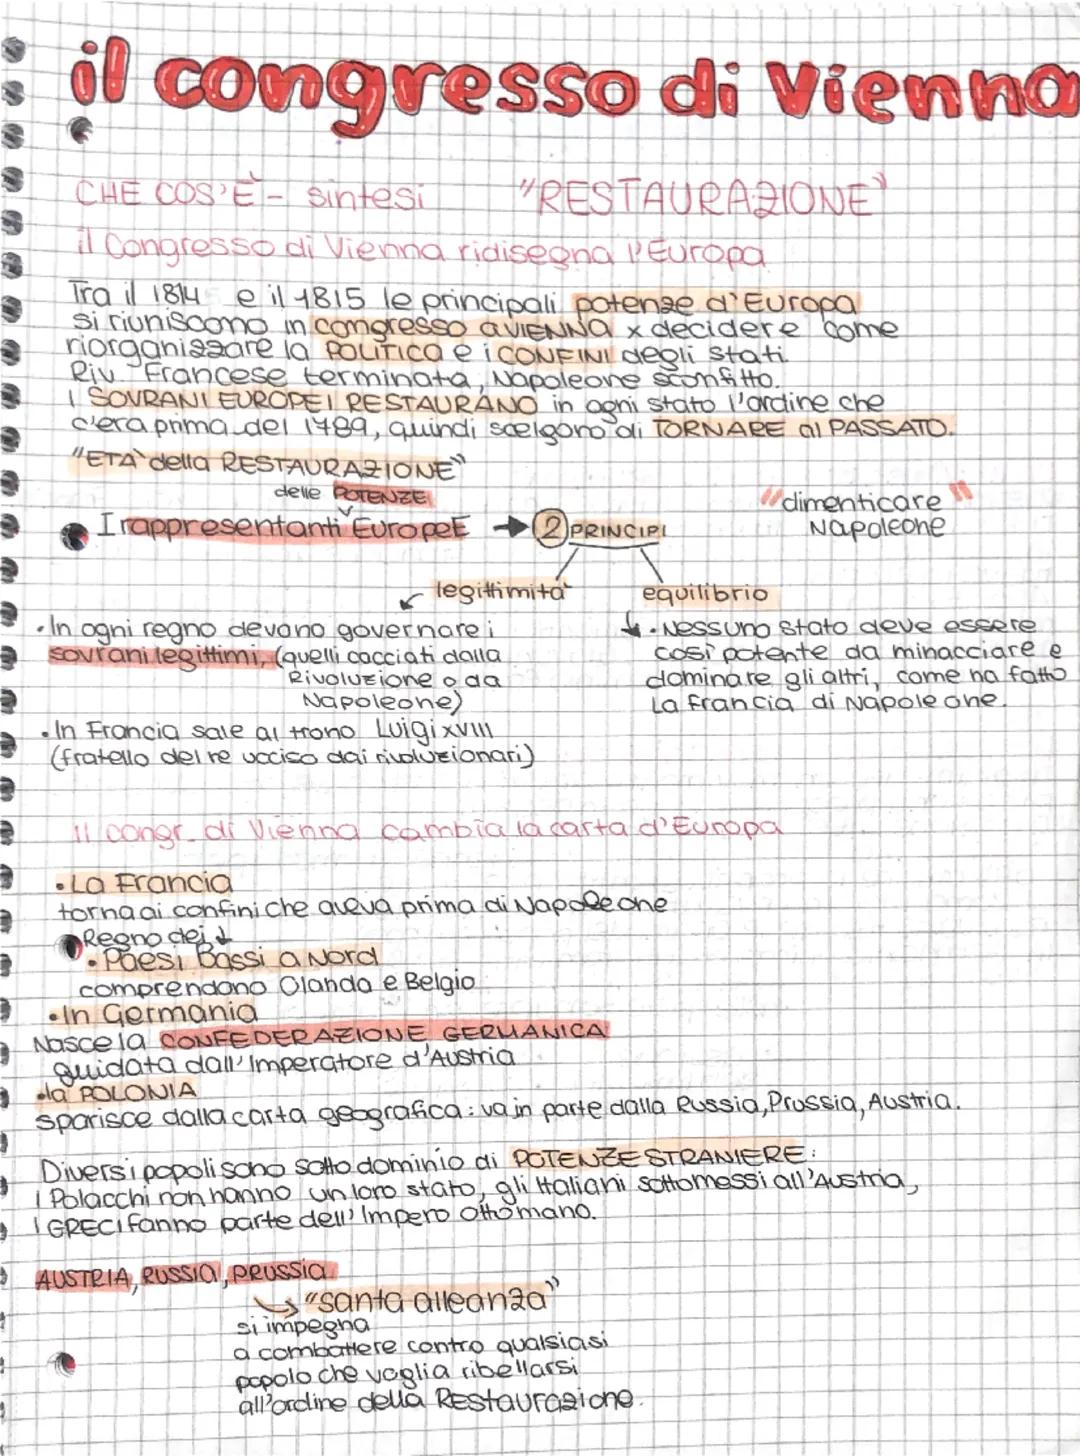 il congresso di Vienna
CHE COS'È - sintesi "RESTAURAZIONE"
il Congresso di Vienna ridisegna l'Europa
Tra il 1814 e il 1815 le principali potenze d'Europa
si riuniscono in congresso a VIENNA x decidere come
riorganizzare la POLITICA e i CONFINI degli stati.
Riv Francese terminata, Napoleone sconfitto.
I SOVRANI EUROPEI RESTAURANO in ogni stato l'ordine che
c'era prima del 1789, quindi scelgono di TORNARE al PASSATO.
"ETÀ della RESTAURAZIONE"
delle POTENZE
I rappresentanti EuropeE → 2 PRINCIPI
"dimenticare"
Napoleone
legittimità
equilibrio
• In ogni regno devono governare i
sovrani legittimi, (quelli cacciati dalla
Rivoluzione o da
Napoleone)
• In Francia sale al trono Luigi XVIII
(fratello del re ucciso dai rivoluzionari)
• Nessuno stato deve essere
così potente da minacciare e
dominare gli altri, come ha fatto
La Francia di Napoleone.
Il congr. di Vienna cambia la carta d'Europa
• La Francia
torna ai confini che aveva prima di Napoleone
Regno dei ↓
• Paesi Bassi a Nord
comprendono Olanda e Belgio
• In Germania
Nasce la CONFEDERAZIONE GERMANICA
guidata dall'Imperatore d'Austria
• la POLONIA
sparisce dalla carta geografica: va in parte dalla Russia, Prussia, Austria.
Diversi popoli sono sotto dominio di POTENZE STRANIERE:
I Polacchi non hanno un loro stato, gli Italiani sottomessi all'Austria,
I GRECI fanno parte dell'Impero Ottomano.
AUSTRIA, RUSSIA, PRUSSIA
↳ "santa alleanza"
si impegna
a combattere contro qualsiasi
popolo che voglia ribellarsi
all'ordine della Restaurazione.